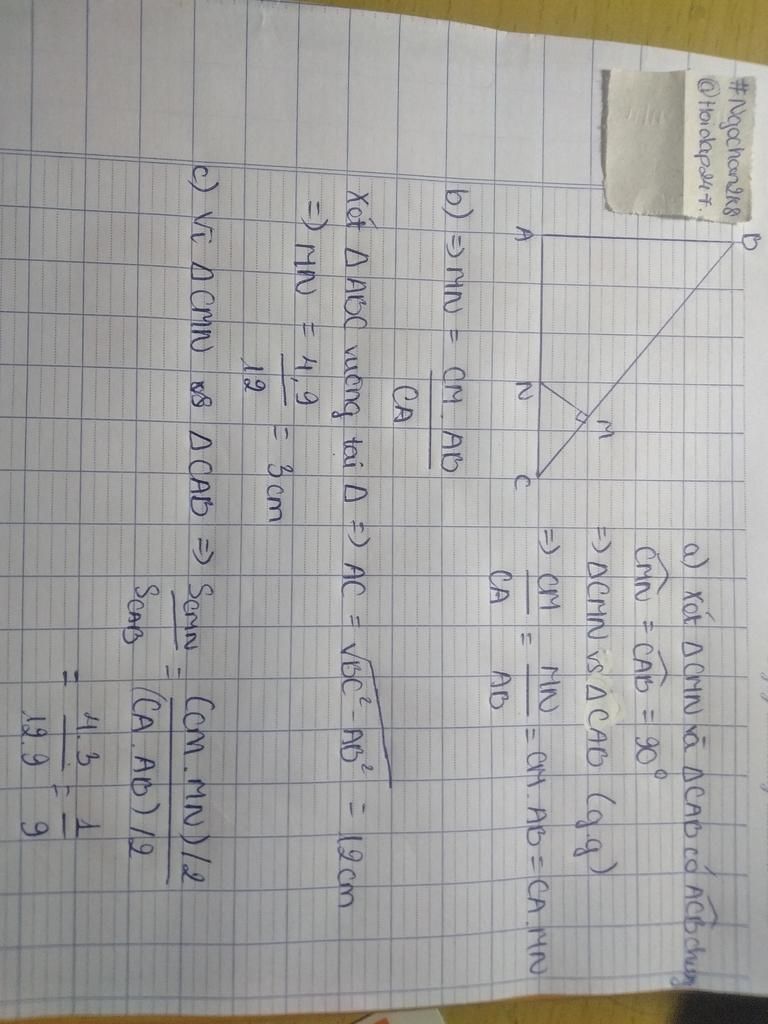 #Ngochan2k8
@Hoidap247.
B
A
N
M
C
a) Xét ΔCMN và ΔCAB có ACB chung
CMN = CAB = 90°
=> ΔCMN ∽ ΔCAB (g.g)
=> CM/CA = MN/AB = CM.AB = CA.MN
b) => MN = CM.AB/CA
Xét ΔABC vuông tại Δ => AC = √BC² - AB² = 12cm
=> MN = 4,9/12 = 3cm
c) Vì ΔCMN ∽ ΔCAB => SCMN/SCAB = (CM.MN)/2/(CA.AB)/2
= 4.3/12.9 = 1/9